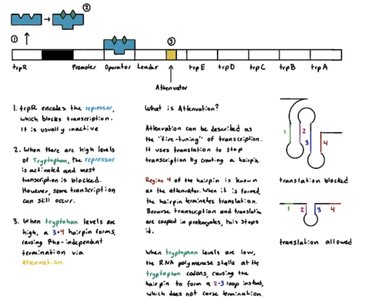 ②
①
③
trpR
Promoter
Operator
Leader
trpE
trpD
trpC
trpB
trpA
Attenuator
1. trpR encodes the repressor,
which blocks transcription.
It is usually inactive
2. When there are high levels
of Tryptophan, the repressor
is activated and most
transcription is blocked.
However, some transcription
can still occur.
3. When tryptophan levels are
high, a 3-4 hairpin forms,
causing Rho-independent
termination via
attenuation.
What is Attenuation?
Attenuation can be described as
the "fine-tuning" of transcription.
It uses translation to stop
transcription by creating a hairpin.
Region 4 of the hairpin is known
as the attenuator. When it is formed,
the hairpin terminates translation.
Because transcription and translation
are coupled in prokaryotes, this stops
it.
When tryptophan levels are low,
the RNA polymerase stalls at the
tryptophan codons, causing the
hairpin to form a 2-3 loop instead,
which does not cause termination.
1
2
3
4
translation blocked
1
2
3
4
translation allowed